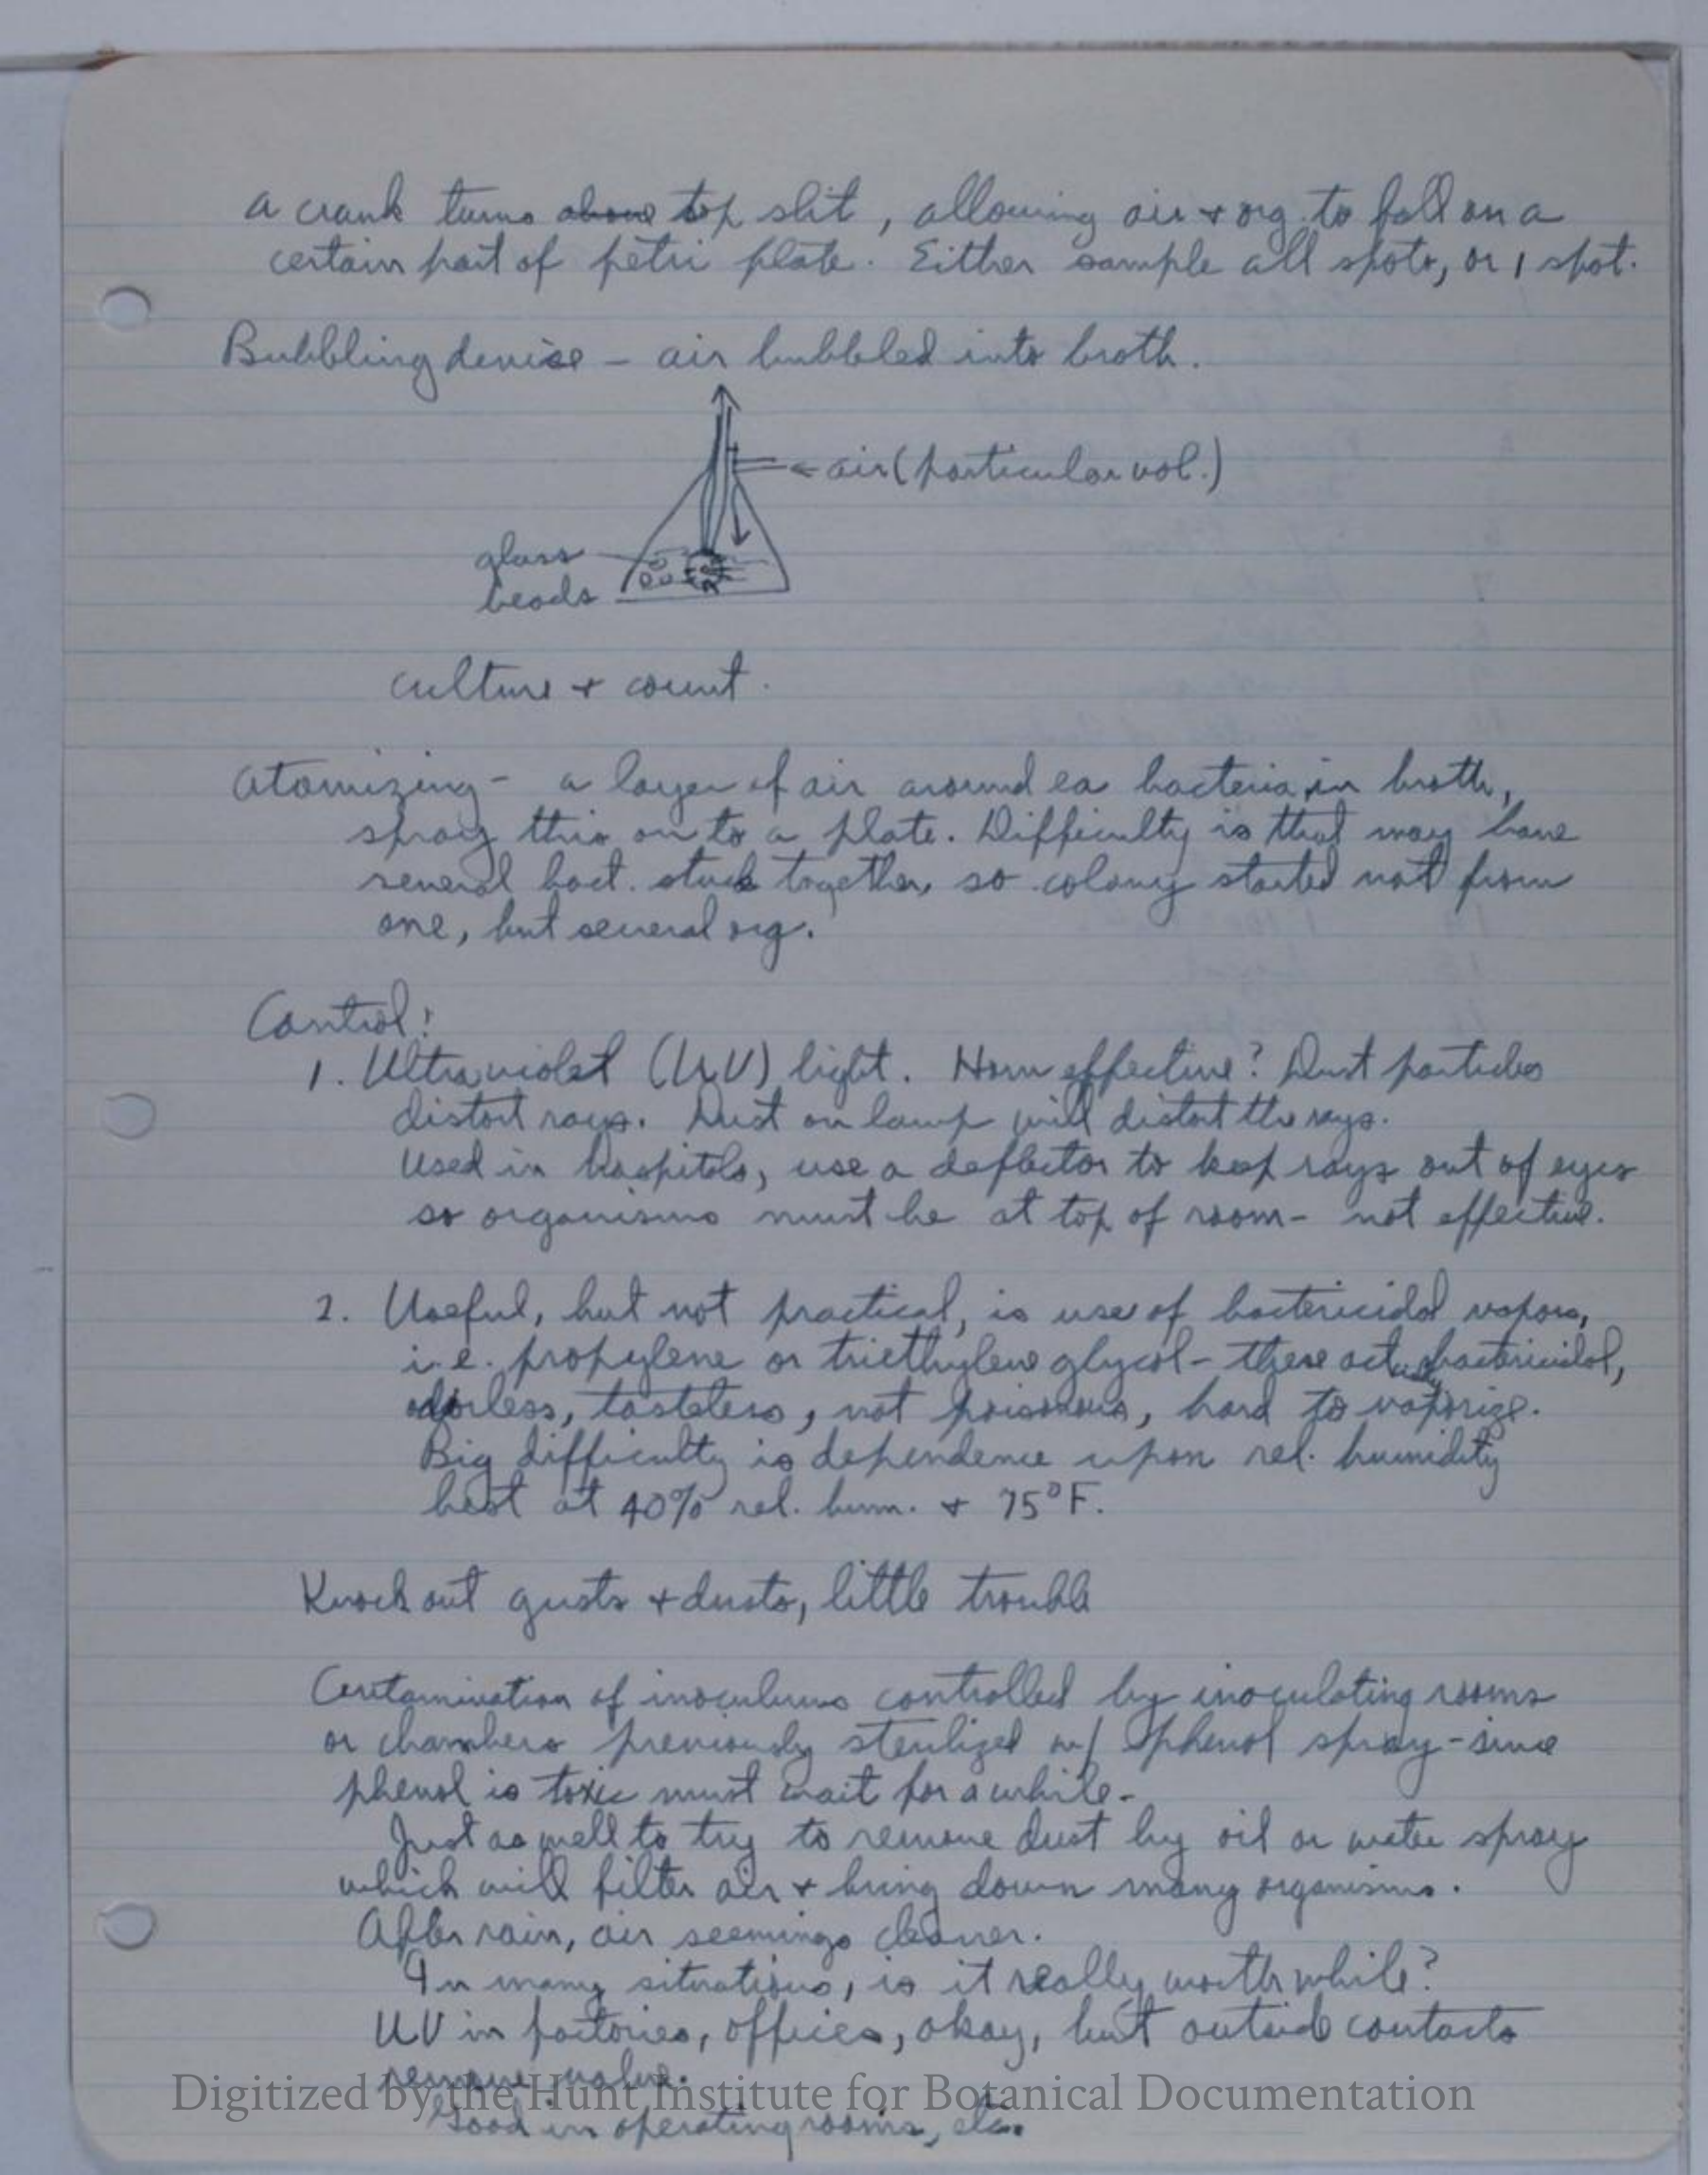 a crank turns above top slit, allowing air + org. to fall on a
certain part of petri plate. Either sample all spots, or 1 spot.
Bubbling devise - air bubbled into broth.
← air (particular vol.)
glass
beads
culture + count.
Atomizing - a layer of air around ea bacteria in broth,
spray this on to a plate. Difficulty is that may have
several bact. stuck together, so colony started not from
one, but several org.
Control:
1. Ultraviolet (UV) light. How effective? Dust particles
distort rays. Dust on lamp will distort the rays.
Used in hospitals, use a deflector to keep rays out of eyes
so organisms must be at top of room - not effective.
2. Useful, but not practical, is use of bactericidal vapors,
i.e. propylene or triethylene glycol - these actually bactericidal,
odorless, tasteless, not poisonous, hard to vaporize.
Big difficulty is dependence upon rel. humidity
best at 40% rel. hum. + 75°F.
Knock out gusts + dusts, little trouble
Contamination of inoculums controlled by inoculating rooms
or chambers previously sterilized w/ phenol spray - since
phenol is toxic must wait for a while -
Just as well to try to remove dust by oil or water spray
which will filter air + bring down many organisms.
After rain, air seemings cleaner.
In many situations, is it really worth while?
UV in factories, offices, okay, but outside contacts
remove value.
Digitized by the Hunt Institute for Botanical Documentation
Good in operating rooms, etc.